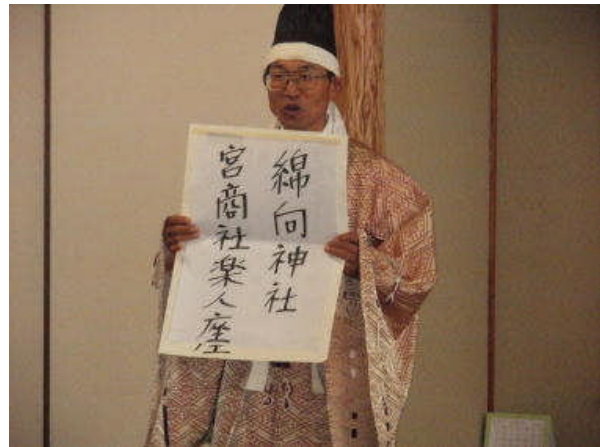 綿向神社
宮商社楽人座